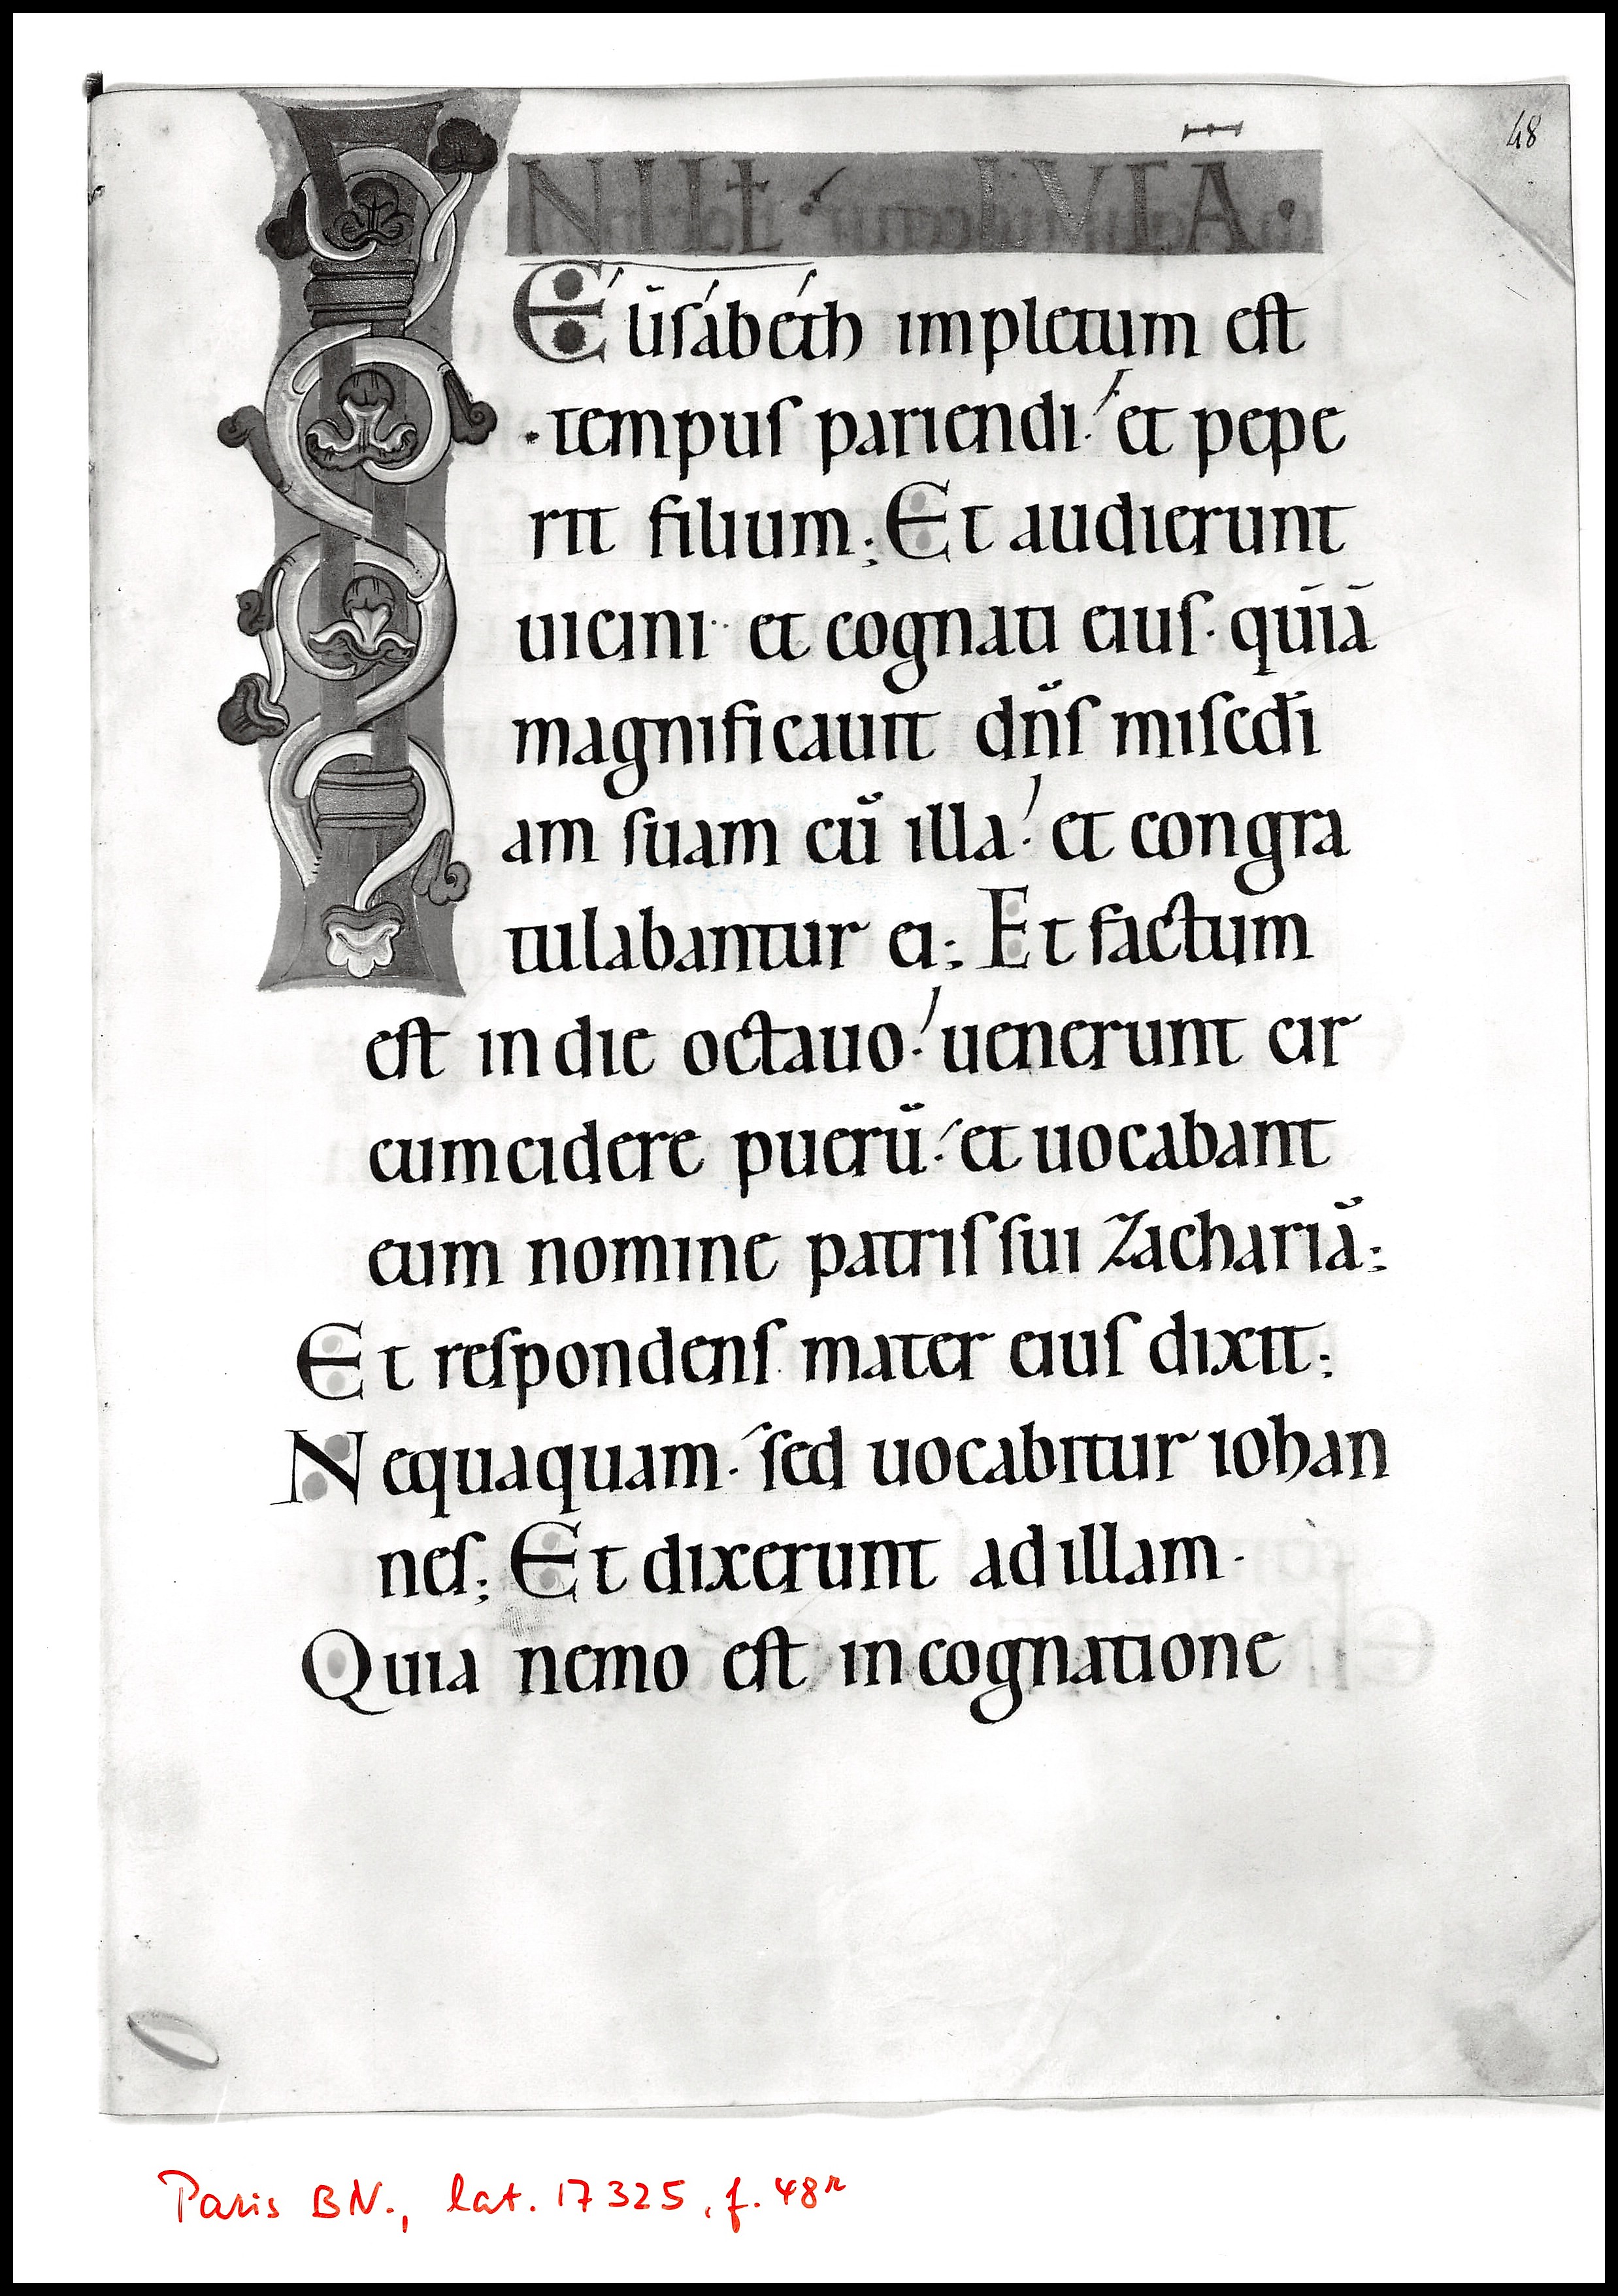 48
IN ILL T̄. LVCĀ.
Elisabeth impletum est
tempus pariendi. et pepe
rit filium; Et audierunt
uicini et cognati eius. quia
magnificauit dn̄s misc̄di
am suam cū illa. et congra
tulabantur ei; Et factum
est in die octauo. uenerunt cir
cumcidere puerū. et uocabant
eum nomine patris sui Zachariā;
Et respondens mater eius dixit;
Nequaquam. sed uocabitur iohan
nes; Et dixerunt ad illam.
Quia nemo est in cognatione
Paris BN., lat. 17325, f. 48r